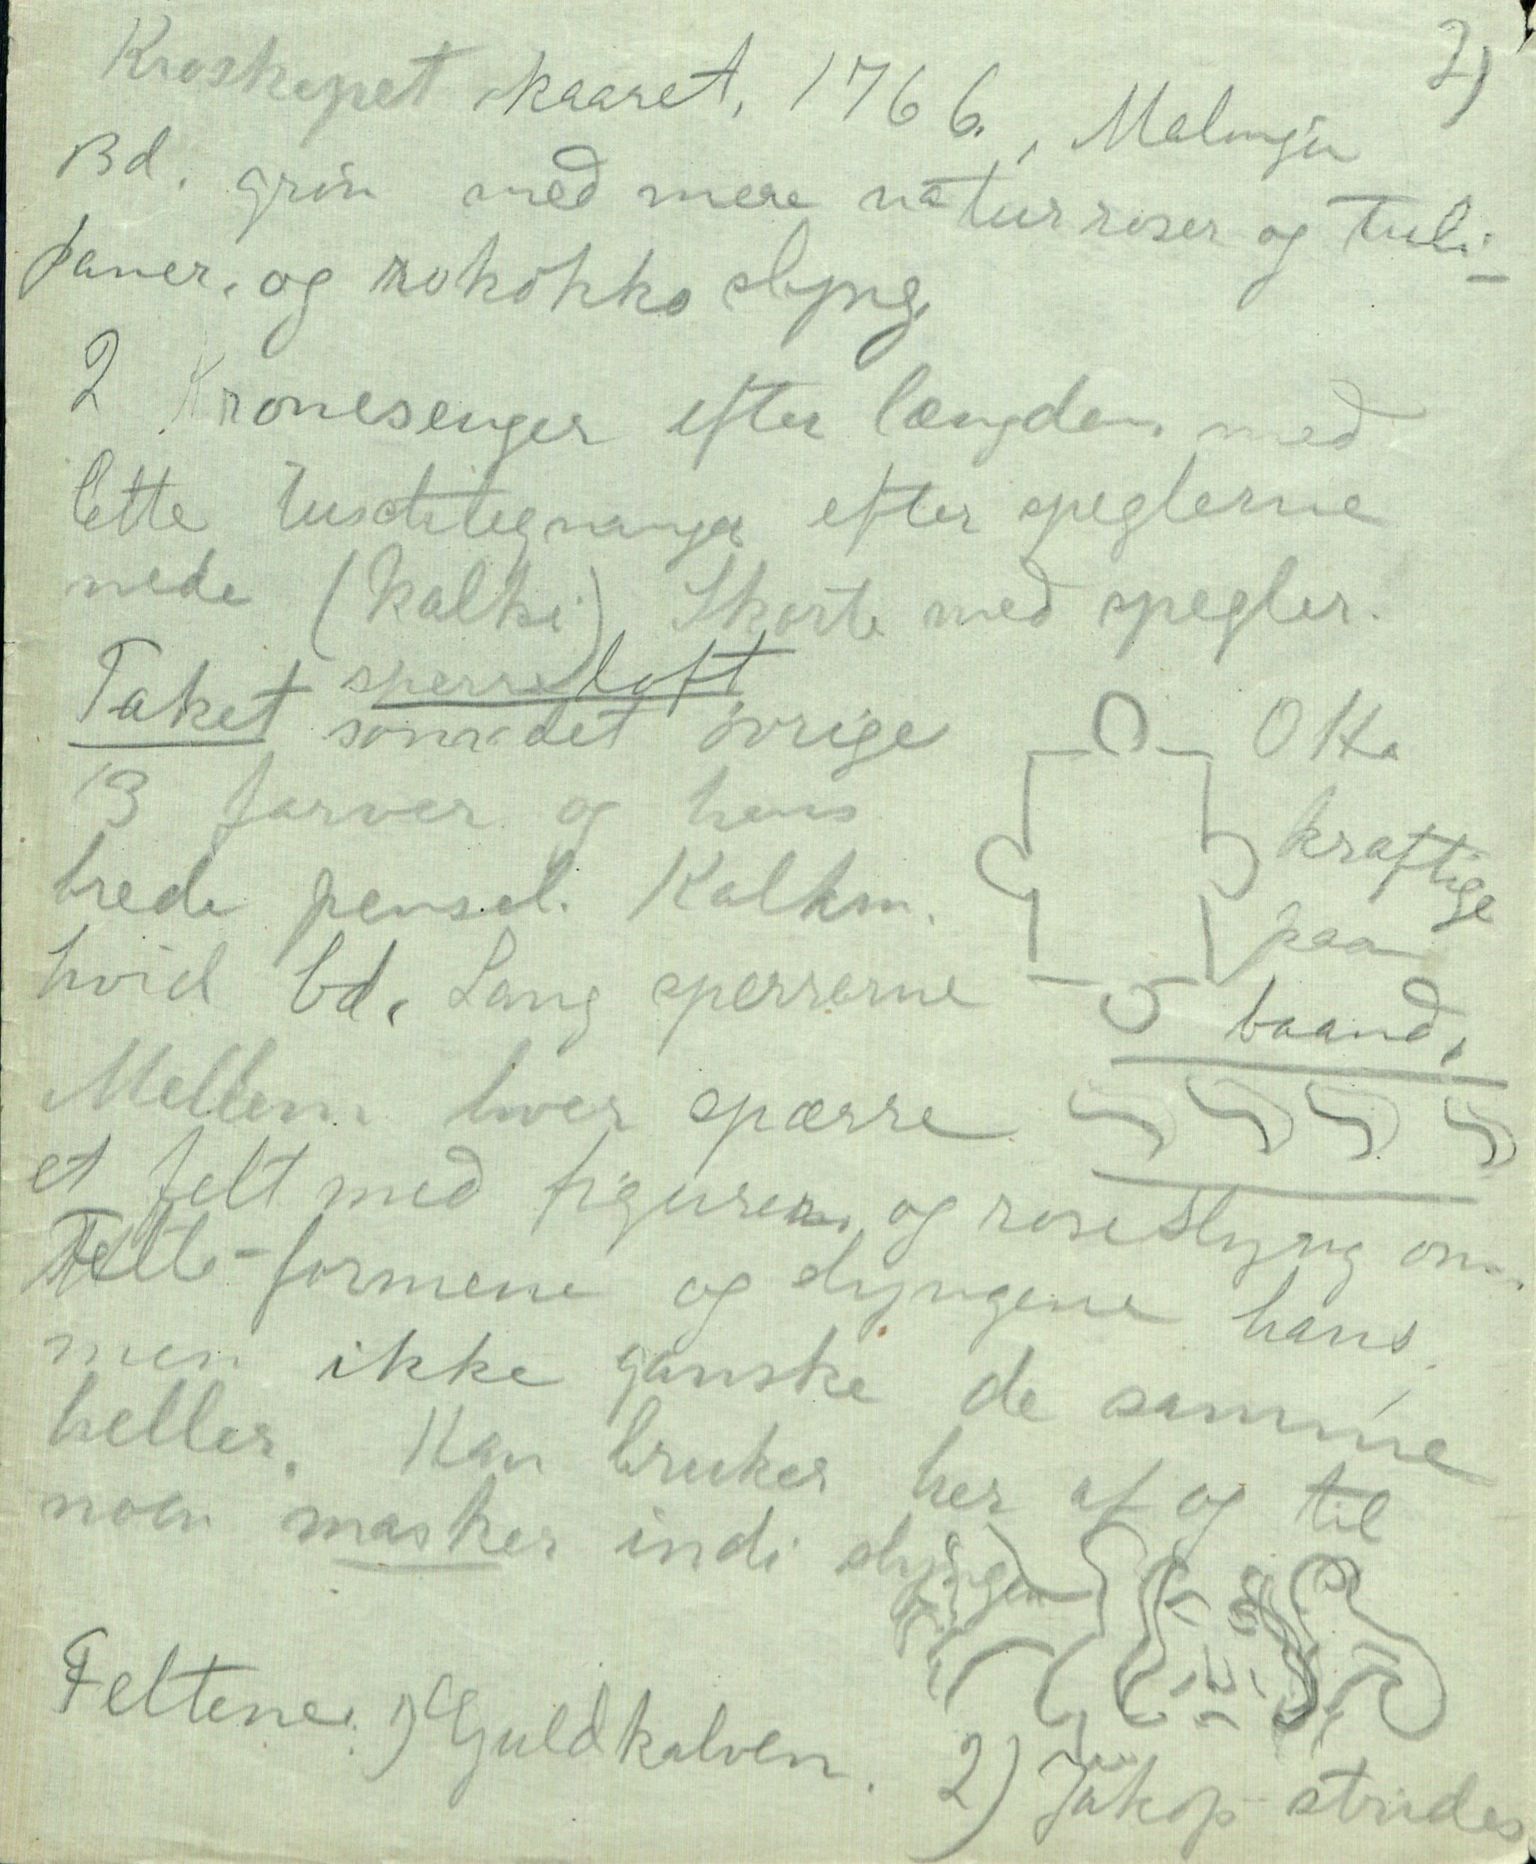 2)
Kroskapet skaaret, 1766., Malinger
Bd. grön med mere naturroser og tuli-
paner. og rokokko slyng
2 Kronesenger efter længden med
lette tuschtegninger efter speglerne
nede (kalki) Skorte med spegler.
Taket sperreloft
som det övrige
13 farver og hans
brede pensel. Kalkm.
hvid bd. Lang sperrerne
kraftige
paa
baand,
Mellem hver spærre
et felt med figurer, og roseslyng om.
Felt-formene og slyngene hans,
men ikke ganske de samme
heller. Kan bruker her af og til
noen masker indi slyngen
Feltene: 1) Guldkalven. 2) Jakop strides